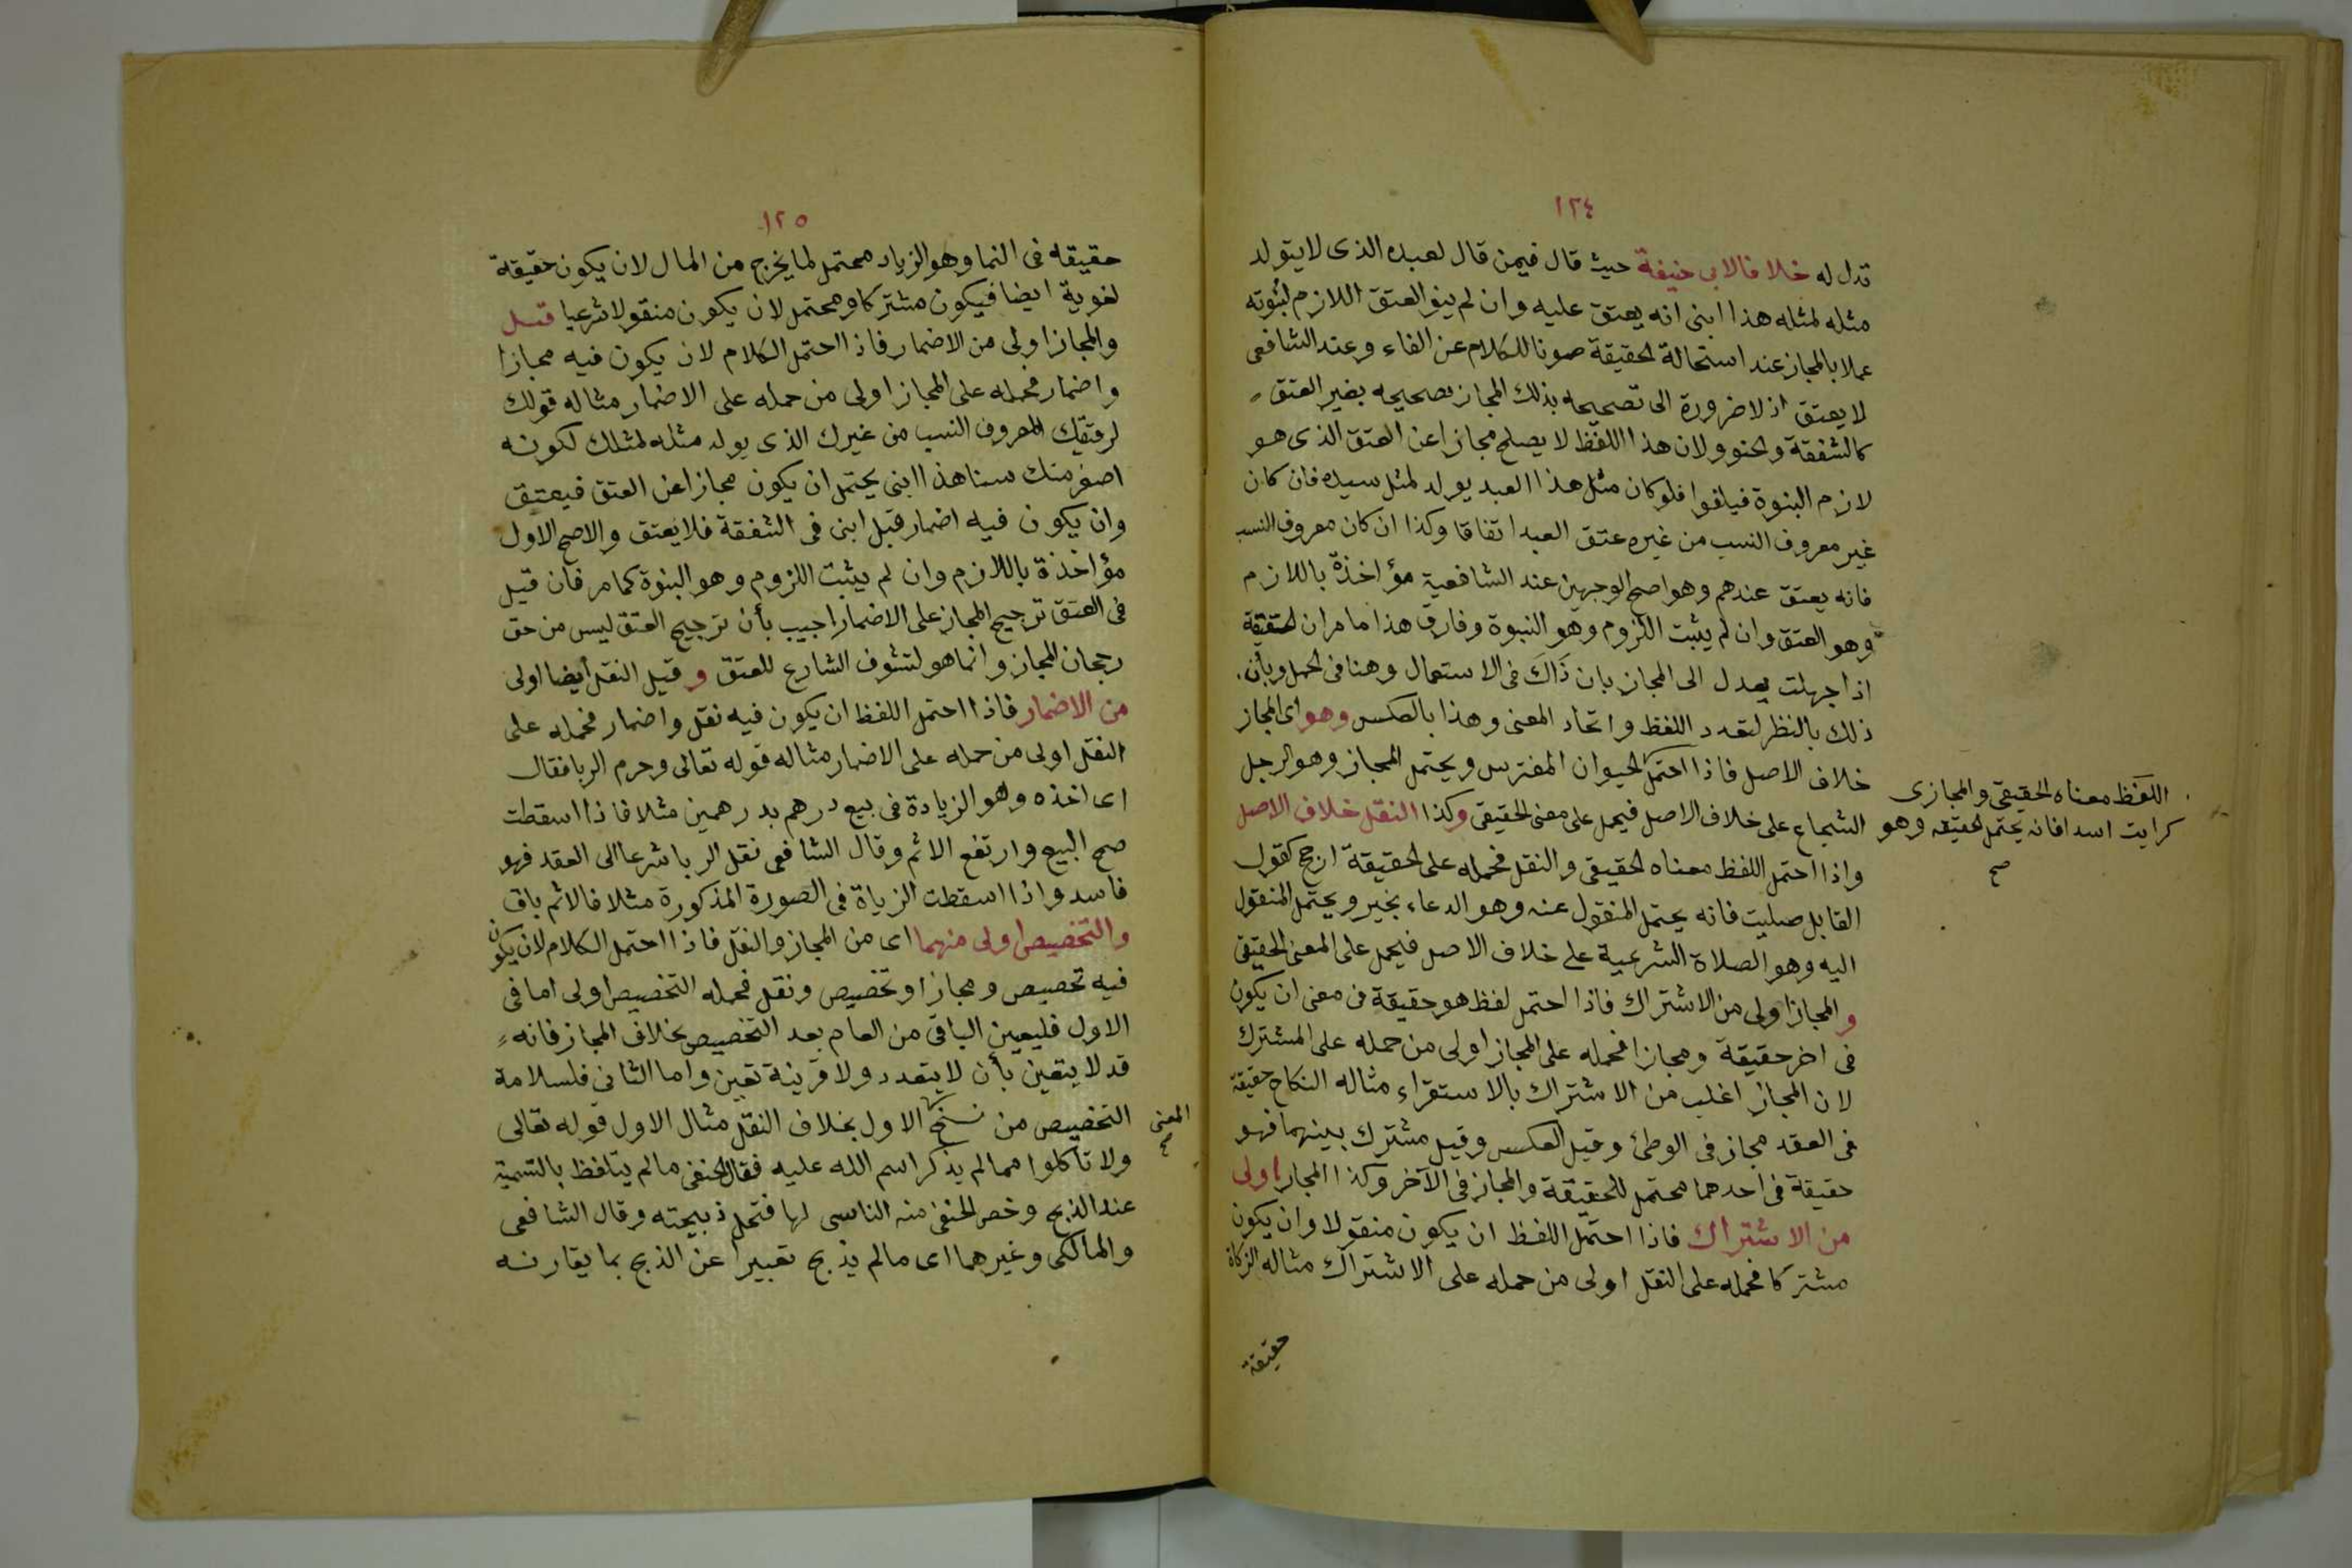 ١٢٤
تدل له خلافا لابي حنيفة حيث قال فيمن قال لعبده الذى لايتولد
مثله لمثله هذا ابنى انه يعتق عليه وان لم ينو العتق اللازم لبنوته
عملا بالمجاز عند استحالة الحقيقة صونا للكلام عن الغاء وعند الشافعى
لا يعتق اذ لا ضرورة الى تصحيحه بذلك المجاز تصحيحه بغير العتق
كالشفقة والحنو ولان هذا اللفظ لا يصلح مجازا عن العتق الذى هو
لازم البنوة فيلغوا فلو كان مثل هذا العبد يولد لمثل سيده فان كان
غير معروف النسب من غيره عتق العبد اتفاقا وكذا ان كان معروف النسب
فانه يعتق عندهم وهو اصح الوجهين عند الشافعية مؤاخذة باللازم
وهو العتق وان لم يثبت اللزوم وهو النبوة وفارق هذا ما مر ان الحقيقة
اذا جهلت يعدل الى المجاز بان ذاك فى الاستعمال وهنا فى الحمل وبأن
ذلك بالنظر لتعدد اللفظ واتحاد المعنى وهذا بالعكس وهو اى المجاز
خلاف الاصل فاذا احتمل الحيوان المفترس ويحتمل المجاز وهو الرجل
اللفظ معناه الحقيقى والمجازى
كرايت اسدا فانه يحتمل الحقيقه وهو
صح
الشجاع على خلاف الاصل فيحمل على معنى الحقيقى وكذا النقل خلاف الاصل
واذا احتمل اللفظ معناه الحقيقى والنقل فحمله على الحقيقة ارجح كقول
القايل صليت فانه يحتمل المنقول عنه وهو الدعاء بخير ويحتمل المنقول
اليه وهو الصلاة الشرعية على خلاف الاصل فيحمل على المعنى الحقيقى
والمجاز اولى من الاشتراك فاذا احتمل لفظ هو حقيقة فى معنى ان يكون
فى اخر حقيقة ومجازا فحمله على المجاز اولى من حمله على المشترك
لان المجاز اغلب من الاشتراك بالاستقراء مثاله النكاح حقيقة
فى العقد مجاز فى الوطئ وقيل العكس وقيل مشترك بينهما فهو
حقيقة فى احدهما محتمل للحقيقة والمجاز فى الآخر وكذا المجاز اولى
من الاشتراك فاذا احتمل اللفظ ان يكون منقولا وان يكون
مشتركا فحمله على النقل اولى من حمله على الاشتراك مثاله الزكاة
حقيقة
١٢٥
حقيقه فى النما وهو الزياد محتمل لما يخرج من المال لان يكون حقيقة
لغوية ايضا فيكون مشتركا ومحتمل لان يكون منقولا شرعيا قيل
والمجاز اولى من الاضمار فاذا احتمل الكلام لان يكون فيه مجازا
واضمار فحمله على المجاز اولى من حمله على الاضمار مثاله قولك
لرقيقك المعروف النسب من غيرك الذى يولد مثله لمثلك لكونه
اصغر منك سنا هذا ابنى يحتمل ان يكون مجازا عن العتق فيعتق
وان يكون فيه اضمار قبل ابنى فى الشفقة فلا يعتق والاصح الاول
مؤاخذة باللازم وان لم يثبت اللزوم وهو البنوة كما مر فان قيل
فى العتق ترجيح المجاز على الاضمار اجيب بأن ترجيح العتق ليس من حق
رجحان المجاز وانما هو لتشوف الشارع للعتق وقيل النقل أيضا اولى
من الاضمار فاذا احتمل اللفظ ان يكون فيه نقل واضمار فحمله على
النقل اولى من حمله على الاضمار مثاله قوله تعالى وحرم الربا فقال
اى اخذه وهو الزيادة فى بيع درهم بدرهمين مثلا فاذا اسقطت
صح البيع وارتفع الاثم وقال الشافعى نقل الربا شرعا الى العقد فهو
فاسد واذا اسقطت الزياة فى الصورة المذكورة مثلا فالاثم باق
والتخصيص اولى منهما اى من المجاز والنقل فاذا احتمل الكلام لان يكون
فيه تخصيص ومجازا وتخصيص ونقل فحمله التخصيص اولى اما فى
الاول فليعين الباقى من العام بعد التخصيص بخلاف المجاز فانه
قد لا يتعين بأن لا يتعدد ولا قرينة تعين واما الثانى فلسلامة
التخصيص من نسخ الاول بخلاف النقل مثال الاول قوله تعالى
المعنى
صح
ولا تأكلوا مما لم يذكر اسم الله عليه فقال الحنفى مالم يتلفظ بالتسمية
عند الذبح وخص الحنفى منه الناسى لها فتحل ذبيحته وقال الشافعى
والمالكى وغيرهما اى مالم يذبح تعبيرا عن الذبح بما يقارنه